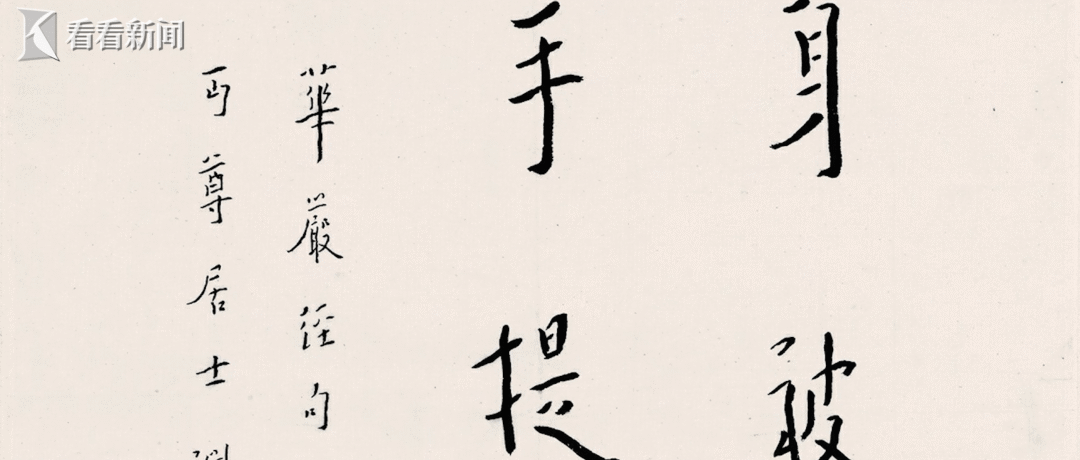 看看新闻
身被
手提
華嚴經句
丏尊居士